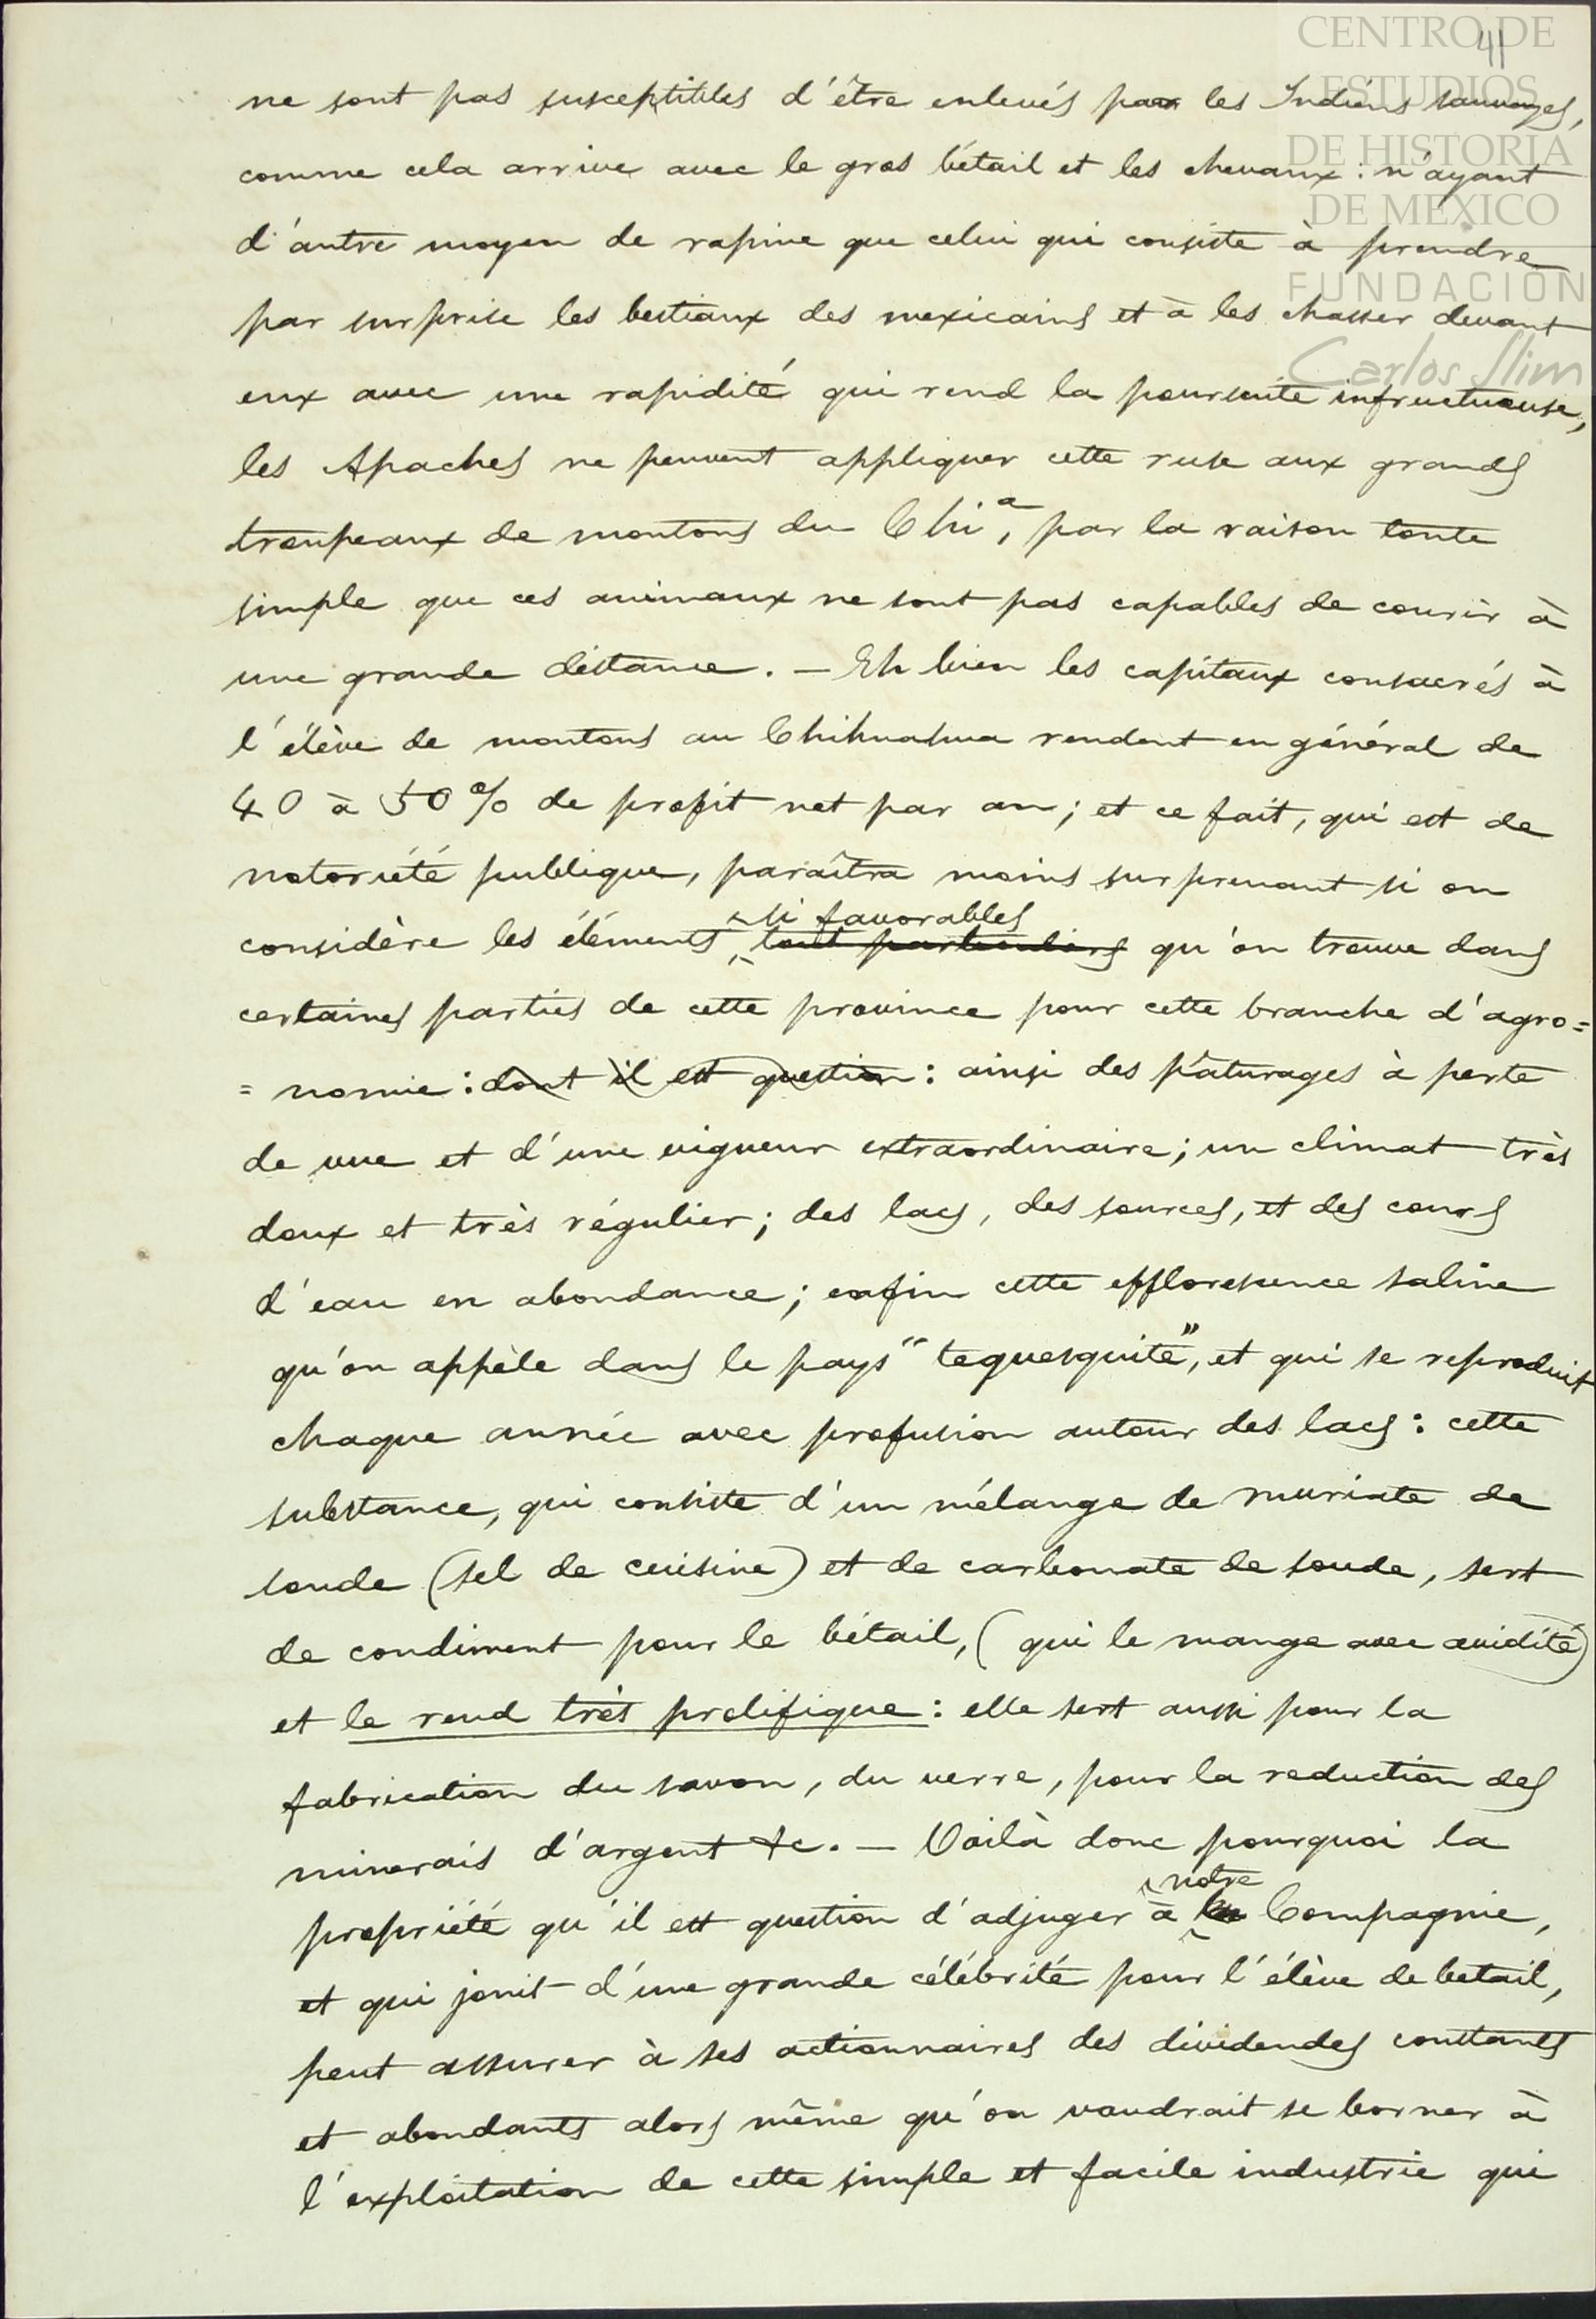 41
CENTRO DE
ESTUDIOS
DE HISTORIA
DE MÉXICO
FUNDACIÓN
Carlos Slim
ne sont pas susceptibles d'être enlevés par les Indiens sauvages,
comme cela arrive avec le gros bétail et les chevaux : n'ayant
d'autre moyen de rapine que celui qui consiste à prendre
par surprise les bestiaux des mexicains et à les chasser devant
eux avec une rapidité qui rend la poursuite infructueuse,
les Apaches ne peuvent appliquer cette ruse aux grands
troupeaux de moutons du Chiª, par la raison toute
simple que ces animaux ne sont pas capables de courir à
une grande distance. — Eh bien les capitaux consacrés à
l'élève de moutons au Chihuahua rendent en général de
40 à 50 % de profit net par an ; et ce fait, qui est de
notoriété publique, paraîtra moins surprenant si on
si favorables
considère les éléments tout particuliers qu'on trouve dans
certaines parties de cette province pour cette branche d'agro=
= nomie : dont il est question : ainsi des pâturages à perte
de vue et d'une vigueur extraordinaire ; un climat très
doux et très régulier ; des lacs, des sources, et des cours
d'eau en abondance ; enfin cette efflorescence saline
qu'on appèle dans le pays "tequesquite", et qui se reproduit
chaque année avec profusion autour des lacs : cette
substance, qui consiste d'un mélange de muriate de
soude (sel de cuisine) et de carbonate de soude, sert
de condiment pour le bétail, (qui le mange avec avidité)
et le rend très prolifique : elle sert aussi pour la
fabrication du savon, du verre, pour la reduction des
minerais d'argent &c. — Voilà donc pourquoi la
notre
propriété qu'il est question d'adjuger à la Compagnie,
et qui jouit d'une grande célébrité pour l'élève de betail,
peut assurer à ses actionnaires des dividendes constants
et abondants alors même qu'on voudrait se borner à
l'exploitation de cette simple et facile industrie qui